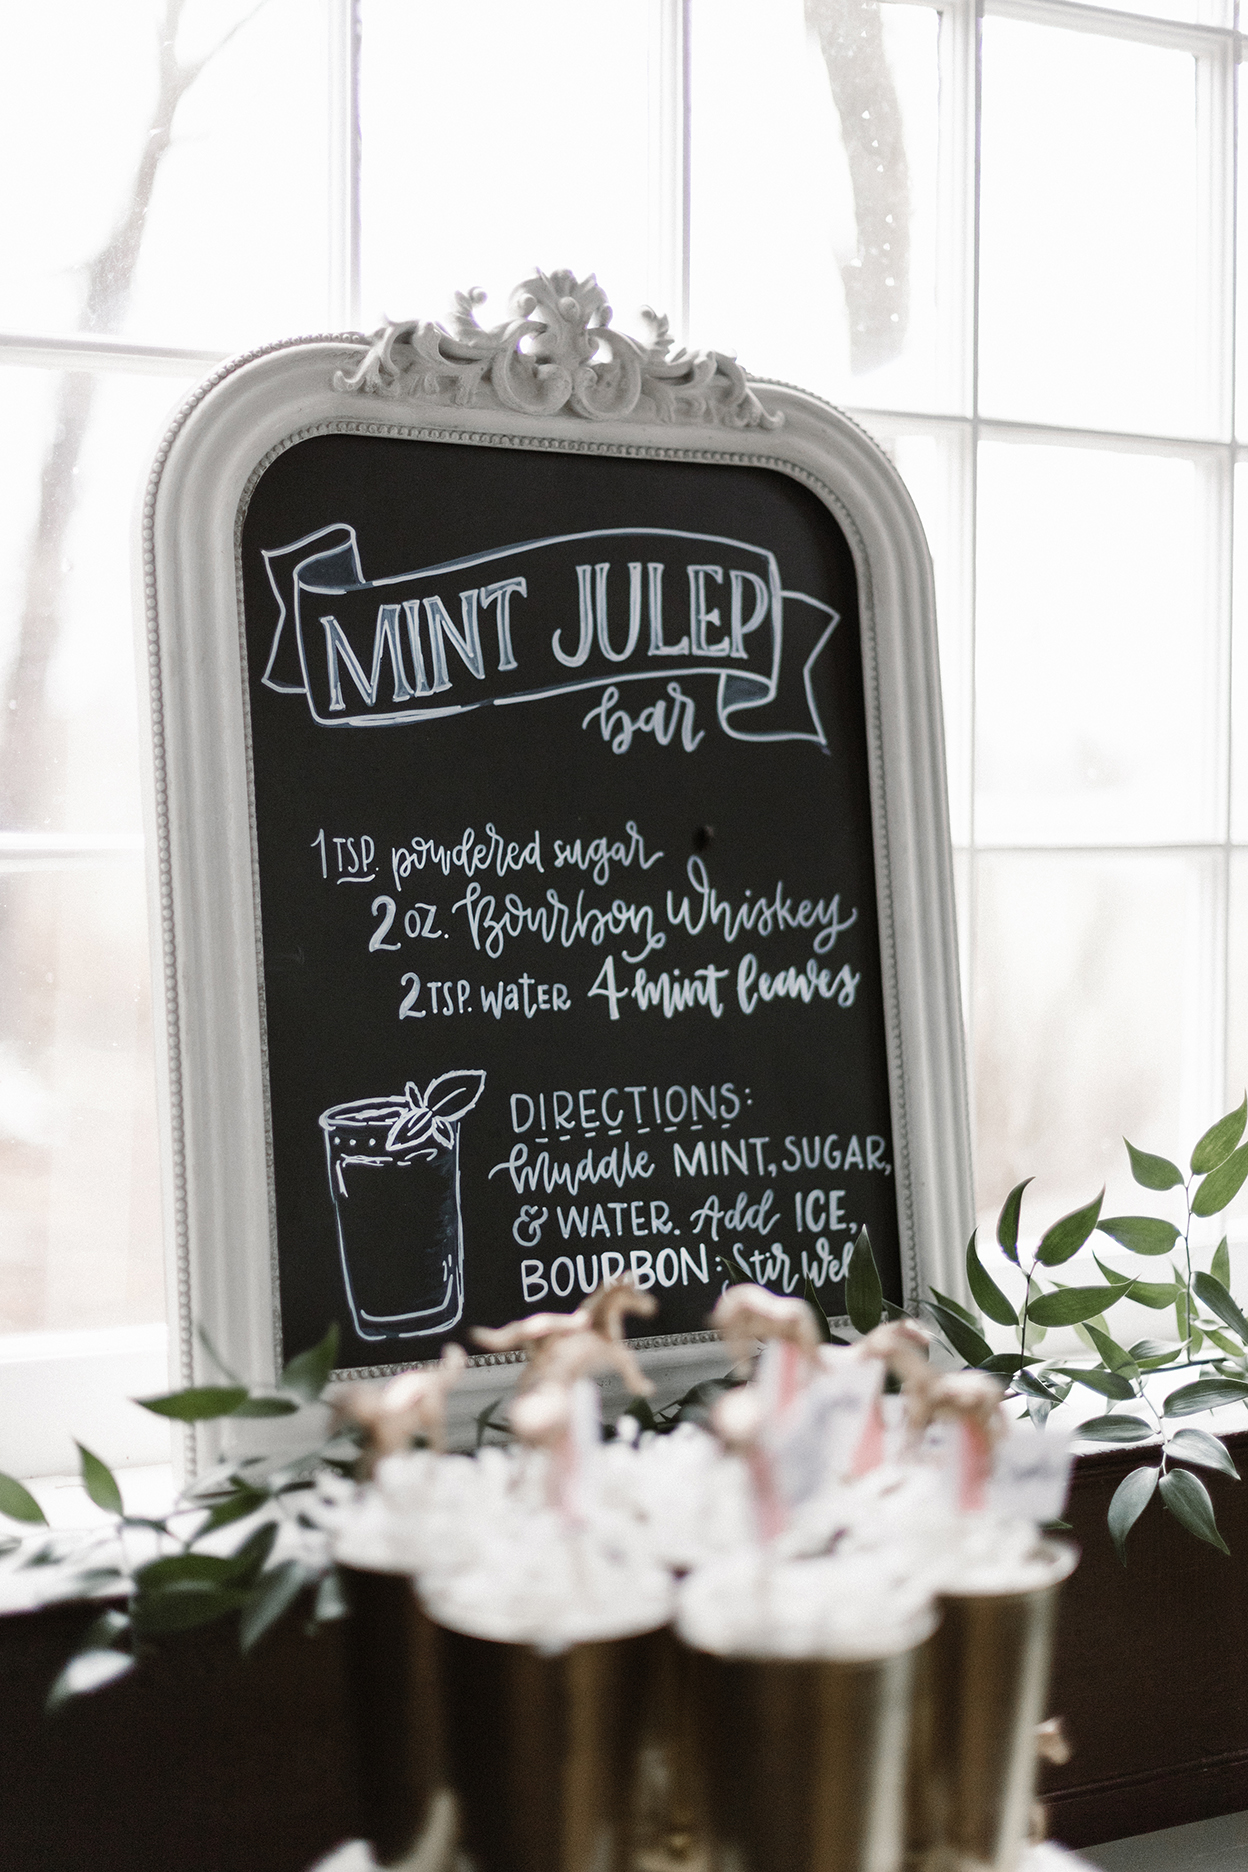 MINT JULEP
bar
1 TSP. powdered sugar
2 oz. Bourbon Whiskey
2 TSP. water 4 mint leaves
DIRECTIONS:
Muddle MINT, SUGAR,
& WATER. Add ICE,
BOURBON; Stir Well